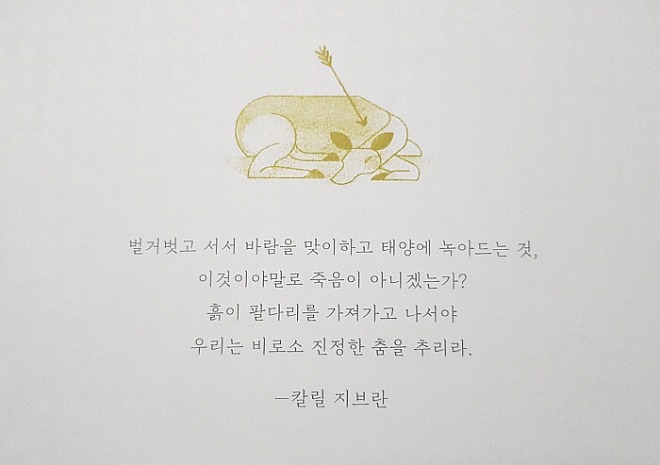 벌거벗고 서서 바람을 맞이하고 태양에 녹아드는 것,
이것이야말로 죽음이 아니겠는가?
흙이 팔다리를 가져가고 나서야
우리는 비로소 진정한 춤을 추리라.
—칼릴 지브란